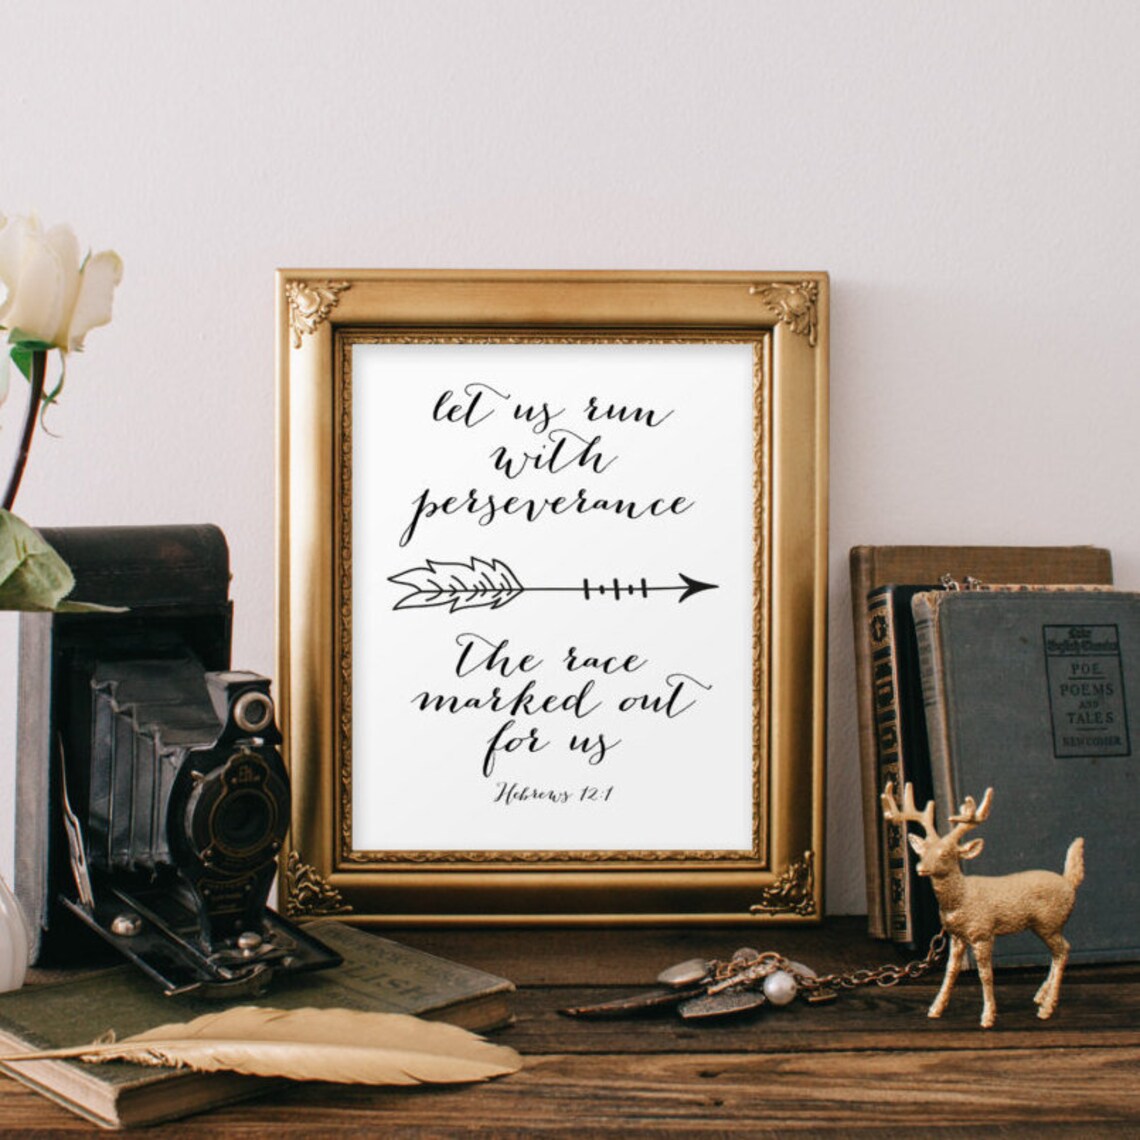 let us run
with
perseverance
the race
marked out
for us
Hebrews 12:1
English Classics
POE
POEMS
AND
TALES
NEWCOMER